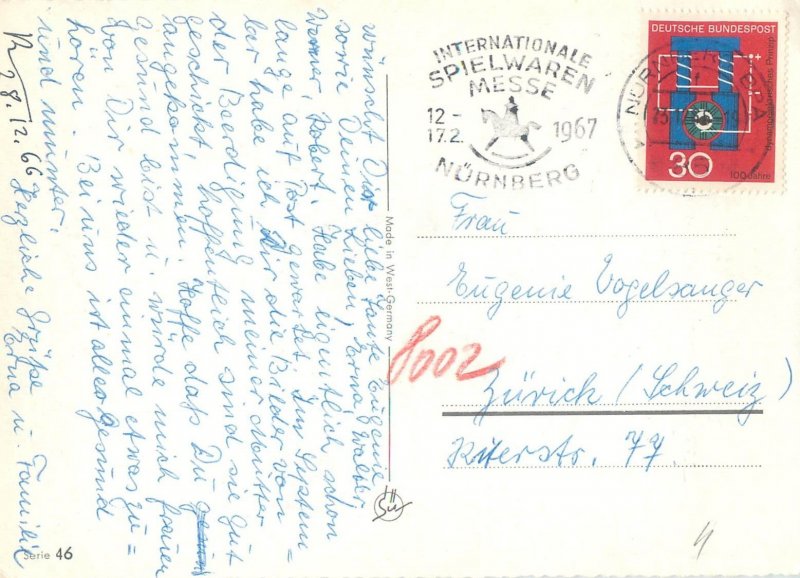 wünscht Dir liebe Tante Eugenie
sowie Deinen Lieben, Erna, Walter
Werner, Robert. Habe eigentlich schon
lange auf Post gewartet. Im Septem=
ber habe ich Dir die Bilder von
der Beerdigung meiner Mutter
geschickt, hoffentlich sind sie gut
angekommen. Hoffe daß Du
gesund bist u. würde mich freuen
von Dir wieder einmal etwas zu=
hören. Bei uns ist alles gesund
und munter.
Herzliche Grüße
Erna u. Familie
28.12.66
Serie 46
Made in West-Germany
INTERNATIONALE
SPIELWAREN
MESSE
12-
17.2.
1967
NÜRNBERG
DEUTSCHE BUNDESPOST
dynamoelektrisches Prinzip
30
100 Jahre
Frau
Eugenie Vogelsanger
8002
Zürich (Schweiz)
77